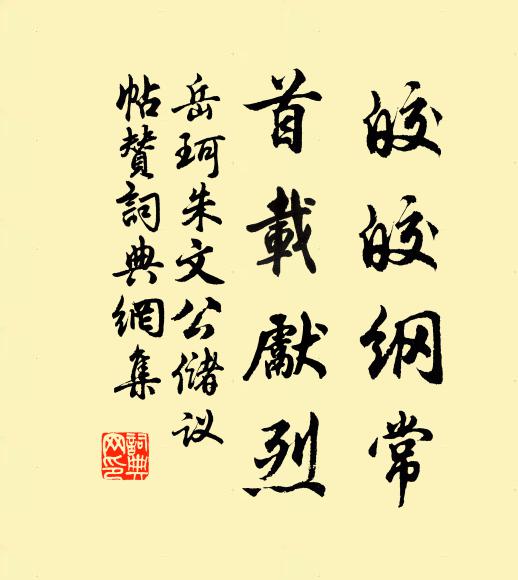 皎皎纲常
首載獻烈
岳珂朱文公储议
帖贊詞典網集
詞典網印